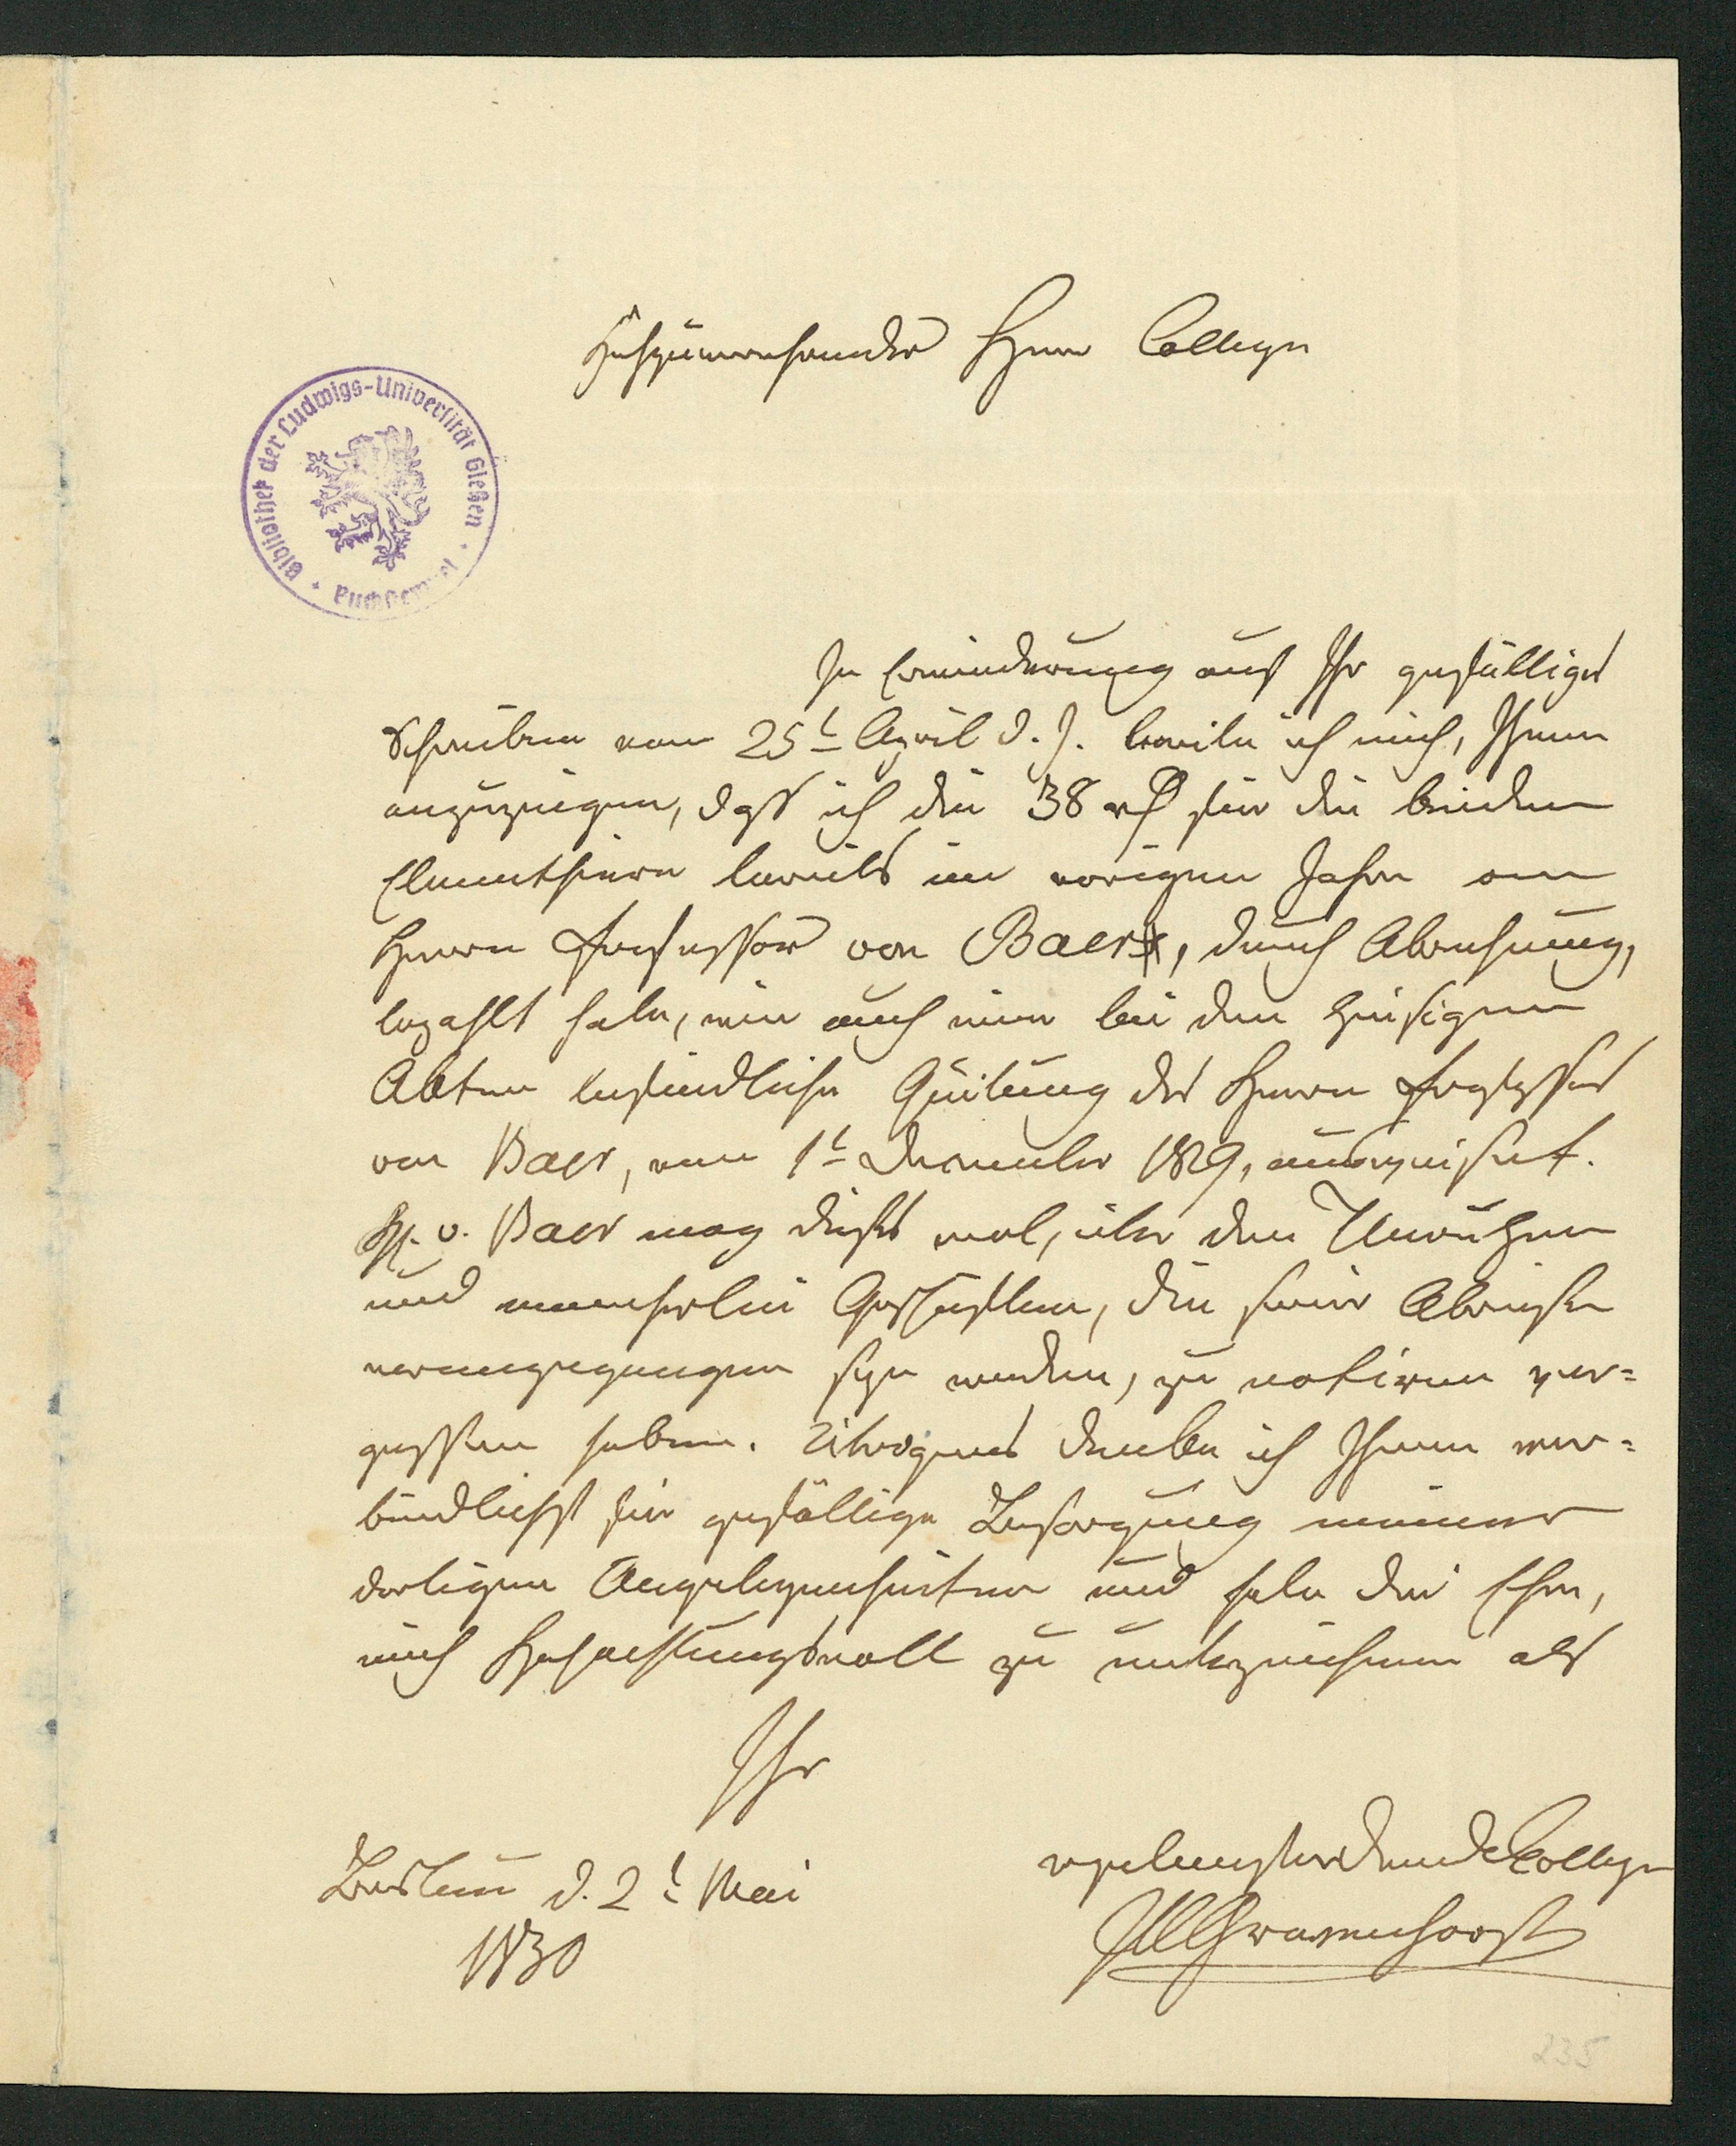 Hochzuverehrender Herr College
Bibliothek der Ludwigs-Universität Gießen
In Erwiederung auf Ihr gefälliges
Schreiben vom 25t April d. J. beeile ich mich, Ihnen
anzuzeigen, daß ich die 38 rℓ für die beiden
Elennthiere bereits im vorigen Jahre an
Herrn Professor von Baer, durch Abrechnung,
bezahlt habe, wie auch eine bei den hiesigen
Akten befindliche Quitung des Herrn Professors
von Baer, vom 1t December 1829, ausweiset.
H. v. Baer mag dieses wol, über den Unruhen
und mancherlei Geschäften, die seiner Abreise
vorangegangen seyn werden, zu notiren ver=
gessen haben. Uebrigens danke ich Ihnen ver=
bindlichst für gefällige Besorgung meiner
dortigen Angelegenheiten und habe die Ehre,
mich Hochachtungsvoll zu unterzeichnen als
Ihr
Breslau d. 2t Mai
1830
ergebenster Collegen
JLC Gravenhorst
235